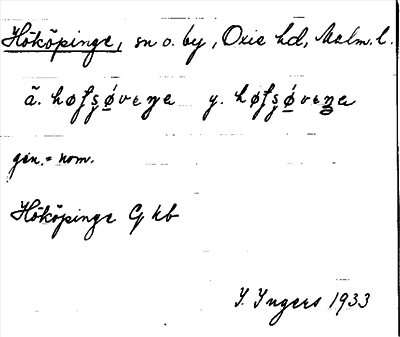 Hököpinge, sn o. by, Oxie hd, Malm. l.
ä. høfsǿveŋe y. høfsǿveŋe
gen. = nom.
Hököpinge G kb
I. Ingers 1933